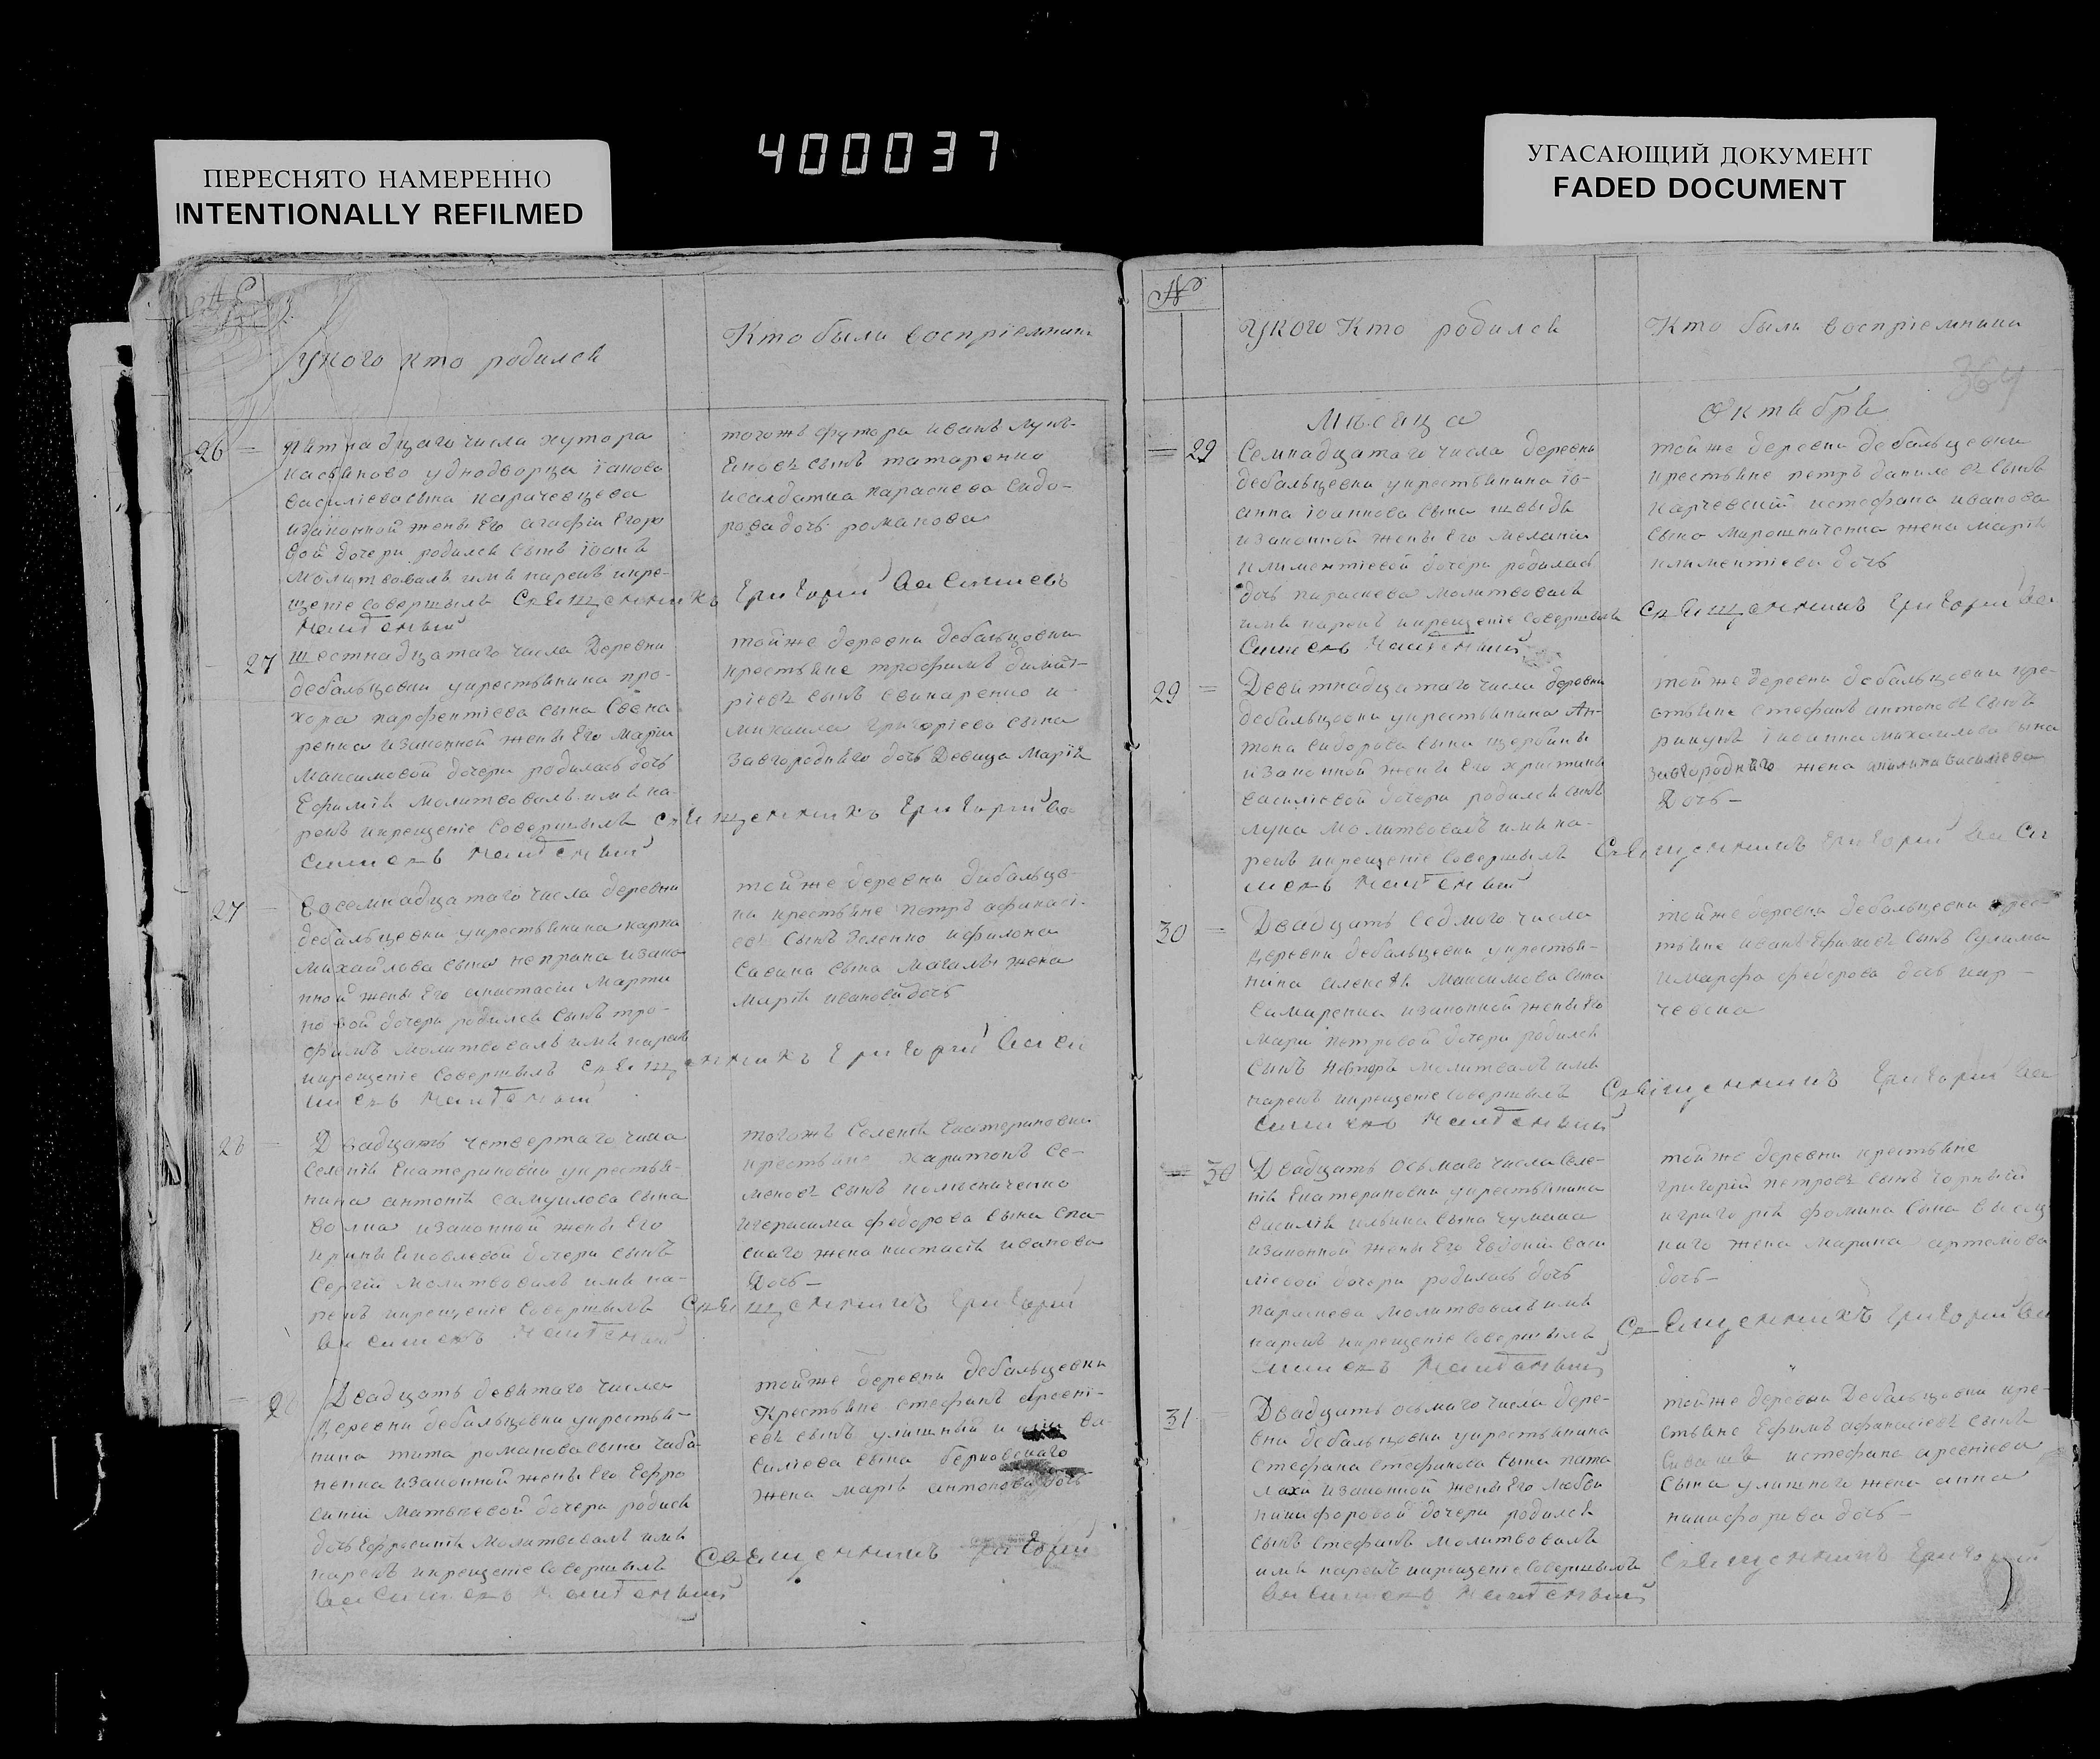 400037
ПЕРЕСНЯТО НАМЕРЕННО
INTENTIONALLY REFILMED
УГАСАЮЩИЙ ДОКУМЕНТ
FADED DOCUMENT
№
укого кто родился
Кто были воспріемники
26
пятнадцаго числа хутора
уднодворца іанова
василіева сына карачевцева
изаконной жены Его агафіи Егоро
вой дочери родился сынъ іоанъ
молитвовалъ имя нареиъ икре-
щеніе совершылъ Священникъ Григорій Василиевъ
тогожъ футора иванъ лукь-
яновъ сынъ татаренко
исалдатка параскева сидо-
рова дочь романова
27
шестнадцатаго числа Деревни
дебальцовки укрестьянина про-
хора парфентіева сына Свена
ренка изаконной жены Его Маріи
Максимовой дочери родилась дочь
Ефимія молитвовалъ имя на-
реиъ икрещеніе совершылъ Священникъ Григорій Ва-
тойже деревни дебальцовки
крестьяне трофимъ димит-
ріевъ сынъ свинаренко и
михаила григоріева сына
завгородняго дочь Девица Марія
27
восемнадцатаго числа деревни
дебальцевки укрестьянина карпа
михайлова сына непрана изако
нной жены Его анастасіи Марти
новой дочери родился сынъ тро-
фимъ молитвовалъ имя нареиъ
икрещеніе совершылъ Священникъ Григорій Васи
тойже деревни дибальцо-
ки крестьяне петръ афанасі-
евъ сынъ Зеленко ифилона
савина сына Магалы жена
марія ивановой дочь
28
Двадцать четвертаго числа
селенія Екатериновки укрестья-
нина антонія самуилова сына
волка изаконной жены Его
ирины Яковлевой дочери сынъ
Сергій молитвовалъ имя на-
реиъ икрещеніе совершылъ Священникъ Григорій
тогожъ селенія Екатериновки
крестьяне харитонъ се-
меновъ сынъ колесниченко
игерасима федорова сына спа-
скаго жена настасія иванова
дочь
Двадцать девятаго числа
деревни дебальцовки укрестья-
нина тита романова сына чаба
ненка изаконной жены Его Ефро
синіи Матвѣевой дочери родися
дочь Ефросинія Молитвовалъ имя
нареиъ икрещеніе совершылъ Священникъ Григорій
тойже деревни дебальцевки
Крестьяне стефанъ арсені-
евъ сынъ улишный и ва-
силіева сына
жена марія антонова дочь
№
укого Кто родился
Кто были воспріемники
364
Мѣсяца
Октября
29
Семнадцатаго числа деревни
дебальцевки укрестьянина іо-
анна іоаннова сына шведы
изаконной жены Его Меланіи
климентіевой дочери родилась
дочь параскева молитвовалъ
имя нареиъ икрещеніе совершылъ Священникъ Григорій Ва
тойже деревни дебальцевки
крестьяне петръ даниловъ сынъ
Карчевскій истефана иванова
сына мирошниченка жена марія
климентіева дочь
29
Девятнадцатаго числа деревни
дебальцовки укрестьянина Ан-
тона сидорова сына щербины
изаконной жены Его христины
василіевой дочери родился сынъ
лука молитвовалъ имя на-
реиъ икрещеніе совершылъ Священникъ Григорій Васи
тойже деревни дебальцовки кре-
стьяне стефанъ антоновъ сынъ
іоанна михаилова сына
завгородняго жена василіева
Дочь
30
Двадцать седмого числа
деревни дебальцевки укрестья-
нина алексѣя Максимова сына
самаренка изаконной жены Его
Маріи петровой дочери родился
сынъ Несторъ молитвалъ имя
нареиъ икрещеніе совершылъ Священникъ Григорій Ва
тойже деревни дебальцевки крес-
тьяне иванъ Ефимовъ сынъ Сулима
имарфа федорова дочь кар-
чевска
30
Двадцать осьмаго числа селе-
нія Екатериновки укрестьянина
василія ильина сына чумака
изаконной жены Его Евдокіи васи
ліевой дочери родилась дочь
параскева молитвовалъ имя
нареиъ икрещеніе совершылъ Священникъ Григорій Ва
тойже деревни крестьяне
григорій петровъ сынъ чорный
игригорія фомина сына
жена Марина артемова
дочь
31
Двадцать осьмаго числа дере-
вни дебальцовки укрестьянина
стефана стефанова сына пата
лахи изаконной жены Его Любви
никифоровой дочери родился
сынъ стефанъ молитвовалъ
имя нареиъ икрещеніе совершылъ
тойже деревни Дебальцовки кре-
стьяне Ефимъ афанасіевъ сынъ
истефана арсеніева
сына улишнаго жена анна
никифорова дочь
Священникъ Григорій